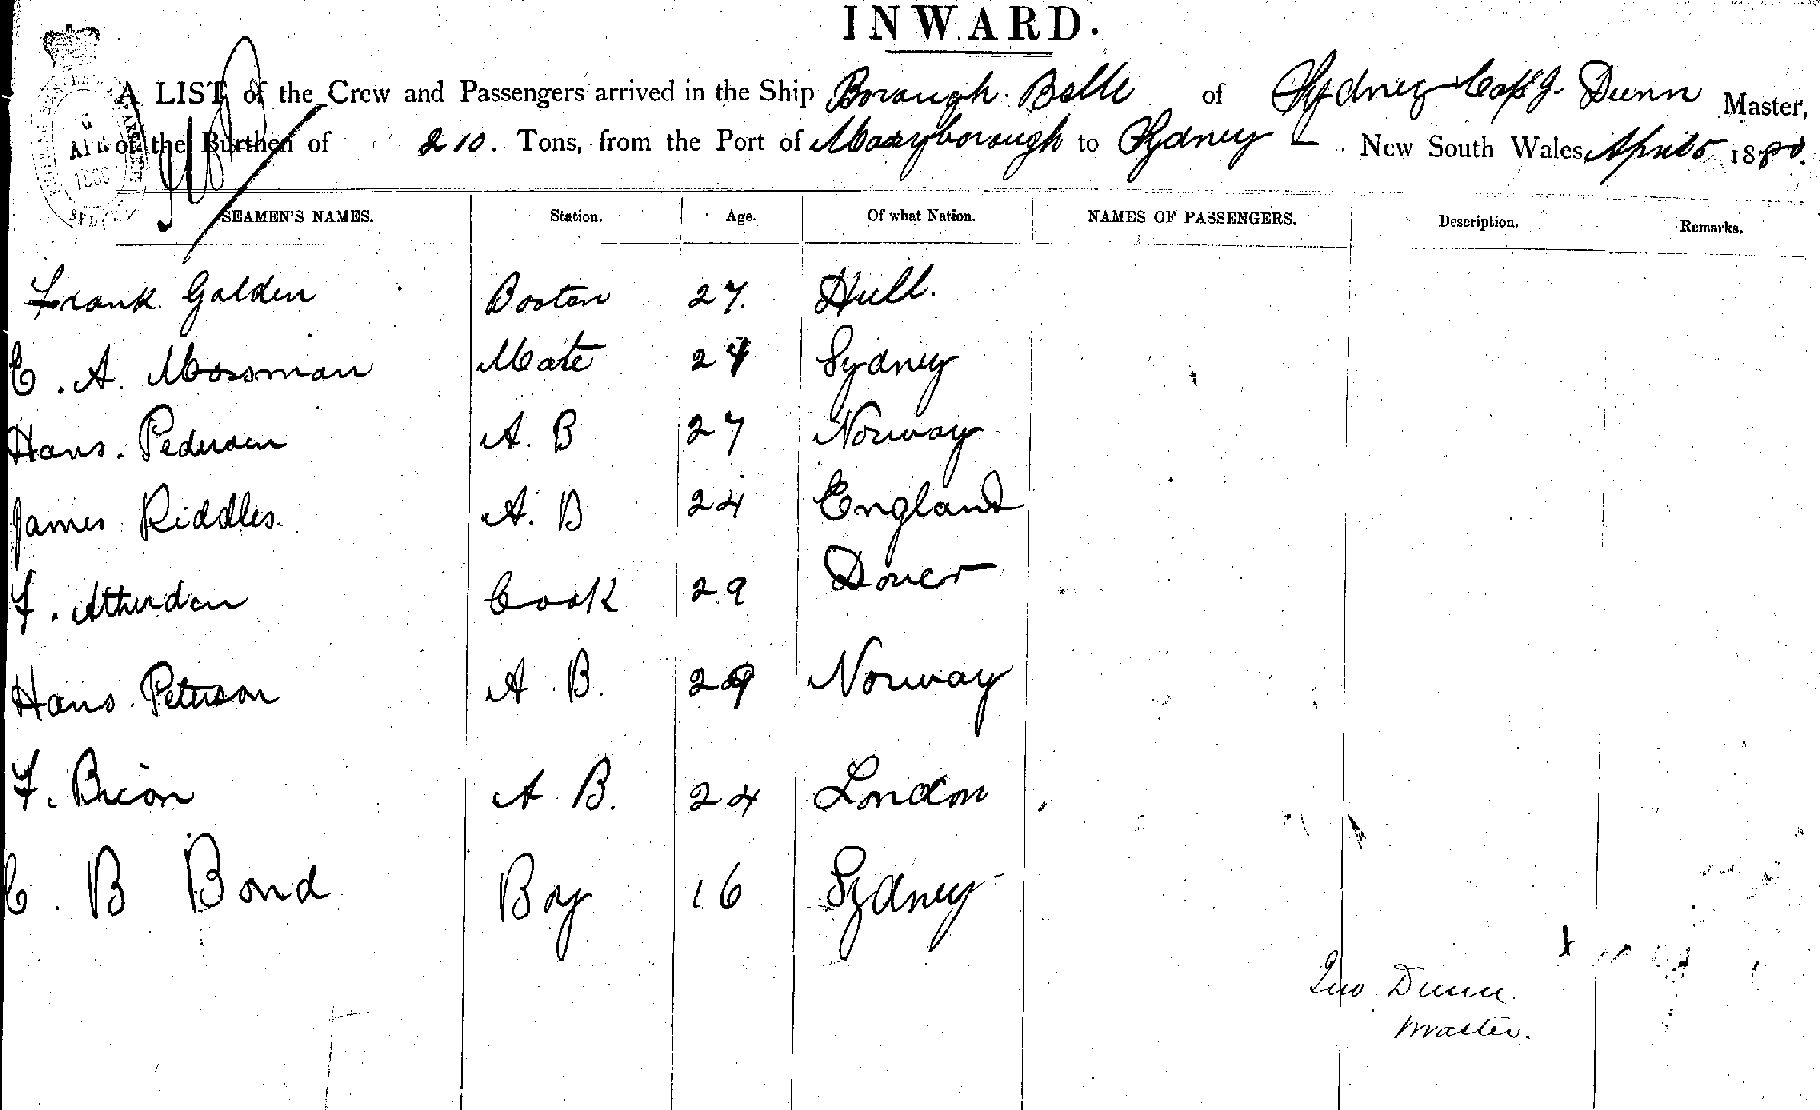 INWARD.
A LIST of the Crew and Passengers arrived in the Ship Borough Belle of Sydney Capt J. Dunn Master,
of the Burthen of 210. Tons, from the Port of Maryborough to Sydney New South Wales April 5 1880.
SEAMEN'S NAMES. Station. Age. Of what Nation. NAMES OF PASSENGERS. Description. Remarks.
Frank Golden Bosten 27. Hull.
C. A. Mossman Mate 24 Sydney
Hans. Pedersen A. B 27 Norway
James Riddles. A. B 24 England
F. Atherden Cook 29 Dover
Hans Peterson A. B. 29 Norway
F. Brion A B. 24 London
C. B Bond Boy 16 Sydney
Jno Dunn.
Master.